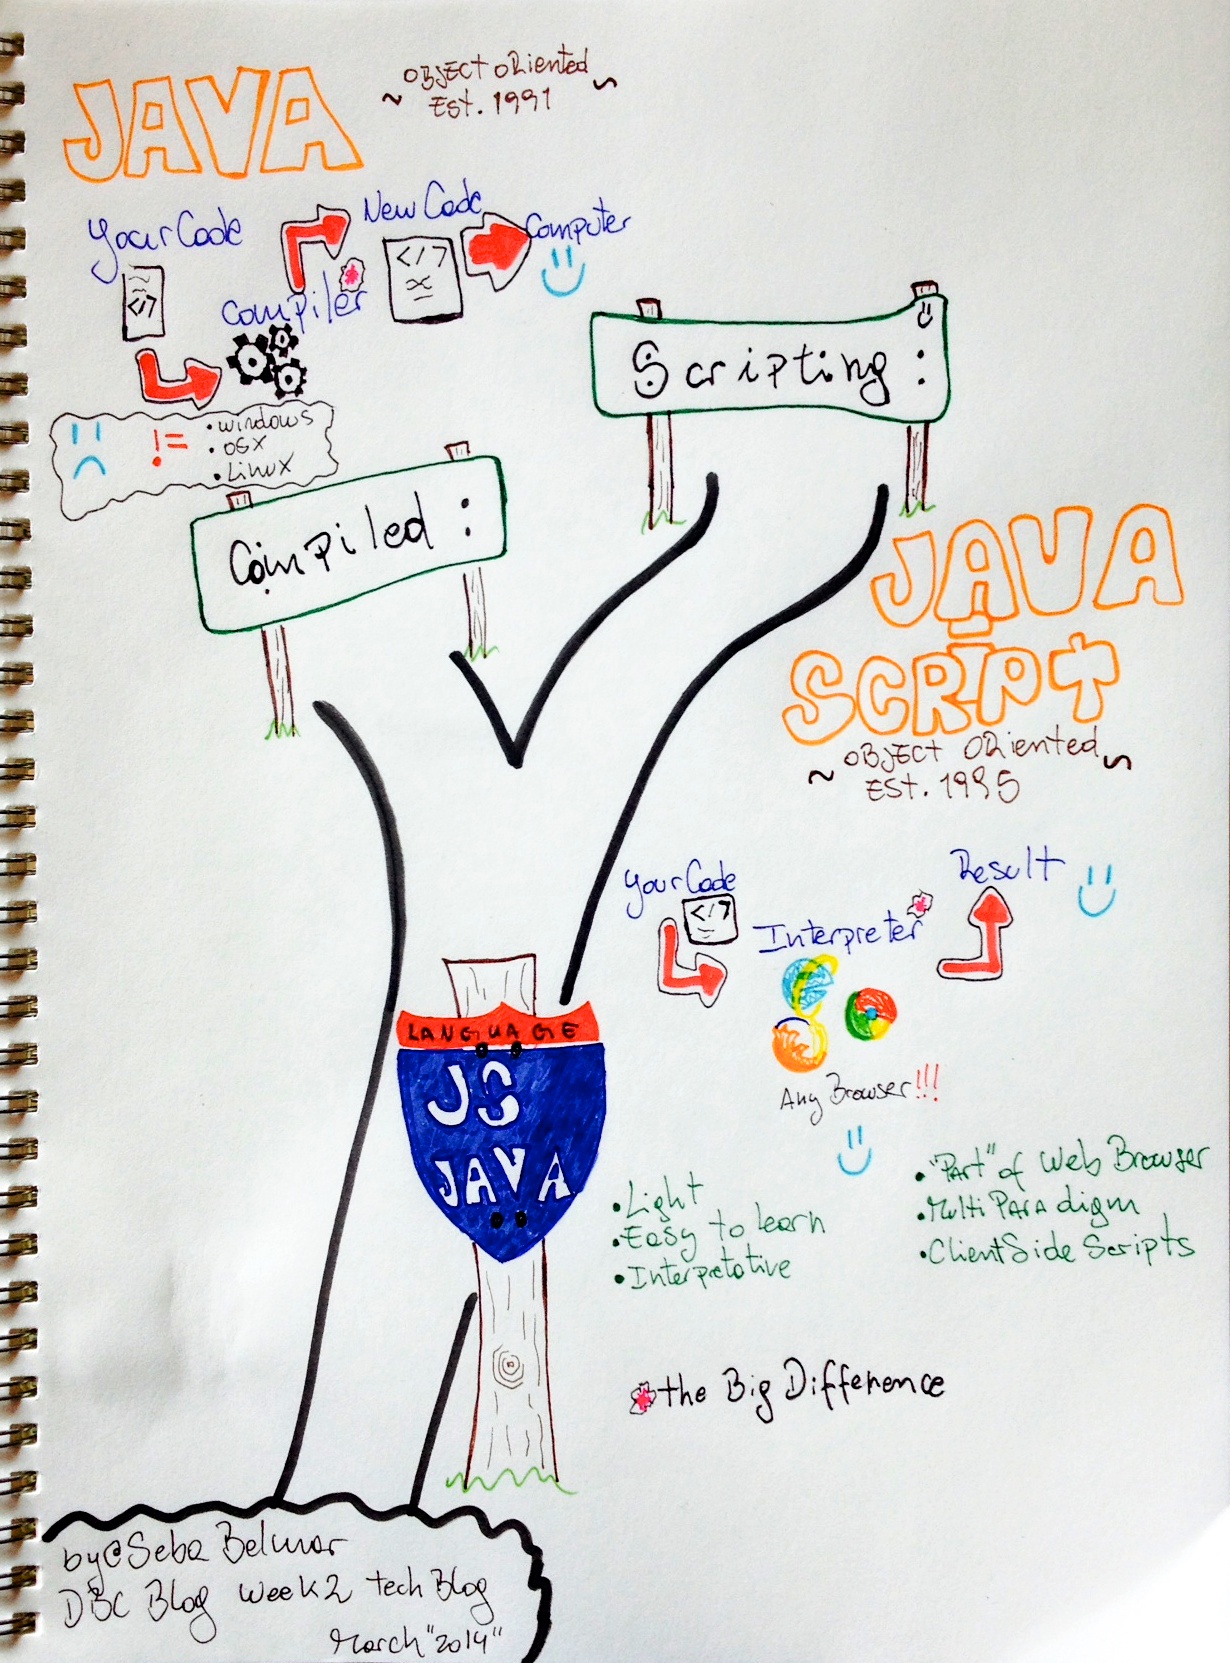 JAVA
~ OBJECT ORiented ~
Est. 1991
Your Code
New Code
Computer
</>
</>
Compiler
!=
• windows
• OSX
• Linux
Compiled :
Scripting :
JAVA
SCRIPT
~ OBJECT ORiented ~
Est. 1995
Your Code
</>
Interpreter
Result
Any Browser!!!
LANGUAGE
JS
JAVA
• Light
• Easy to learn
• Interpretative
• "Part" of Web Browser
• Multi Paradigm
• ClientSide Scripts
the Big Difference
by @Seba Belmar
DBC Blog Week2 tech Blog
March "2014"